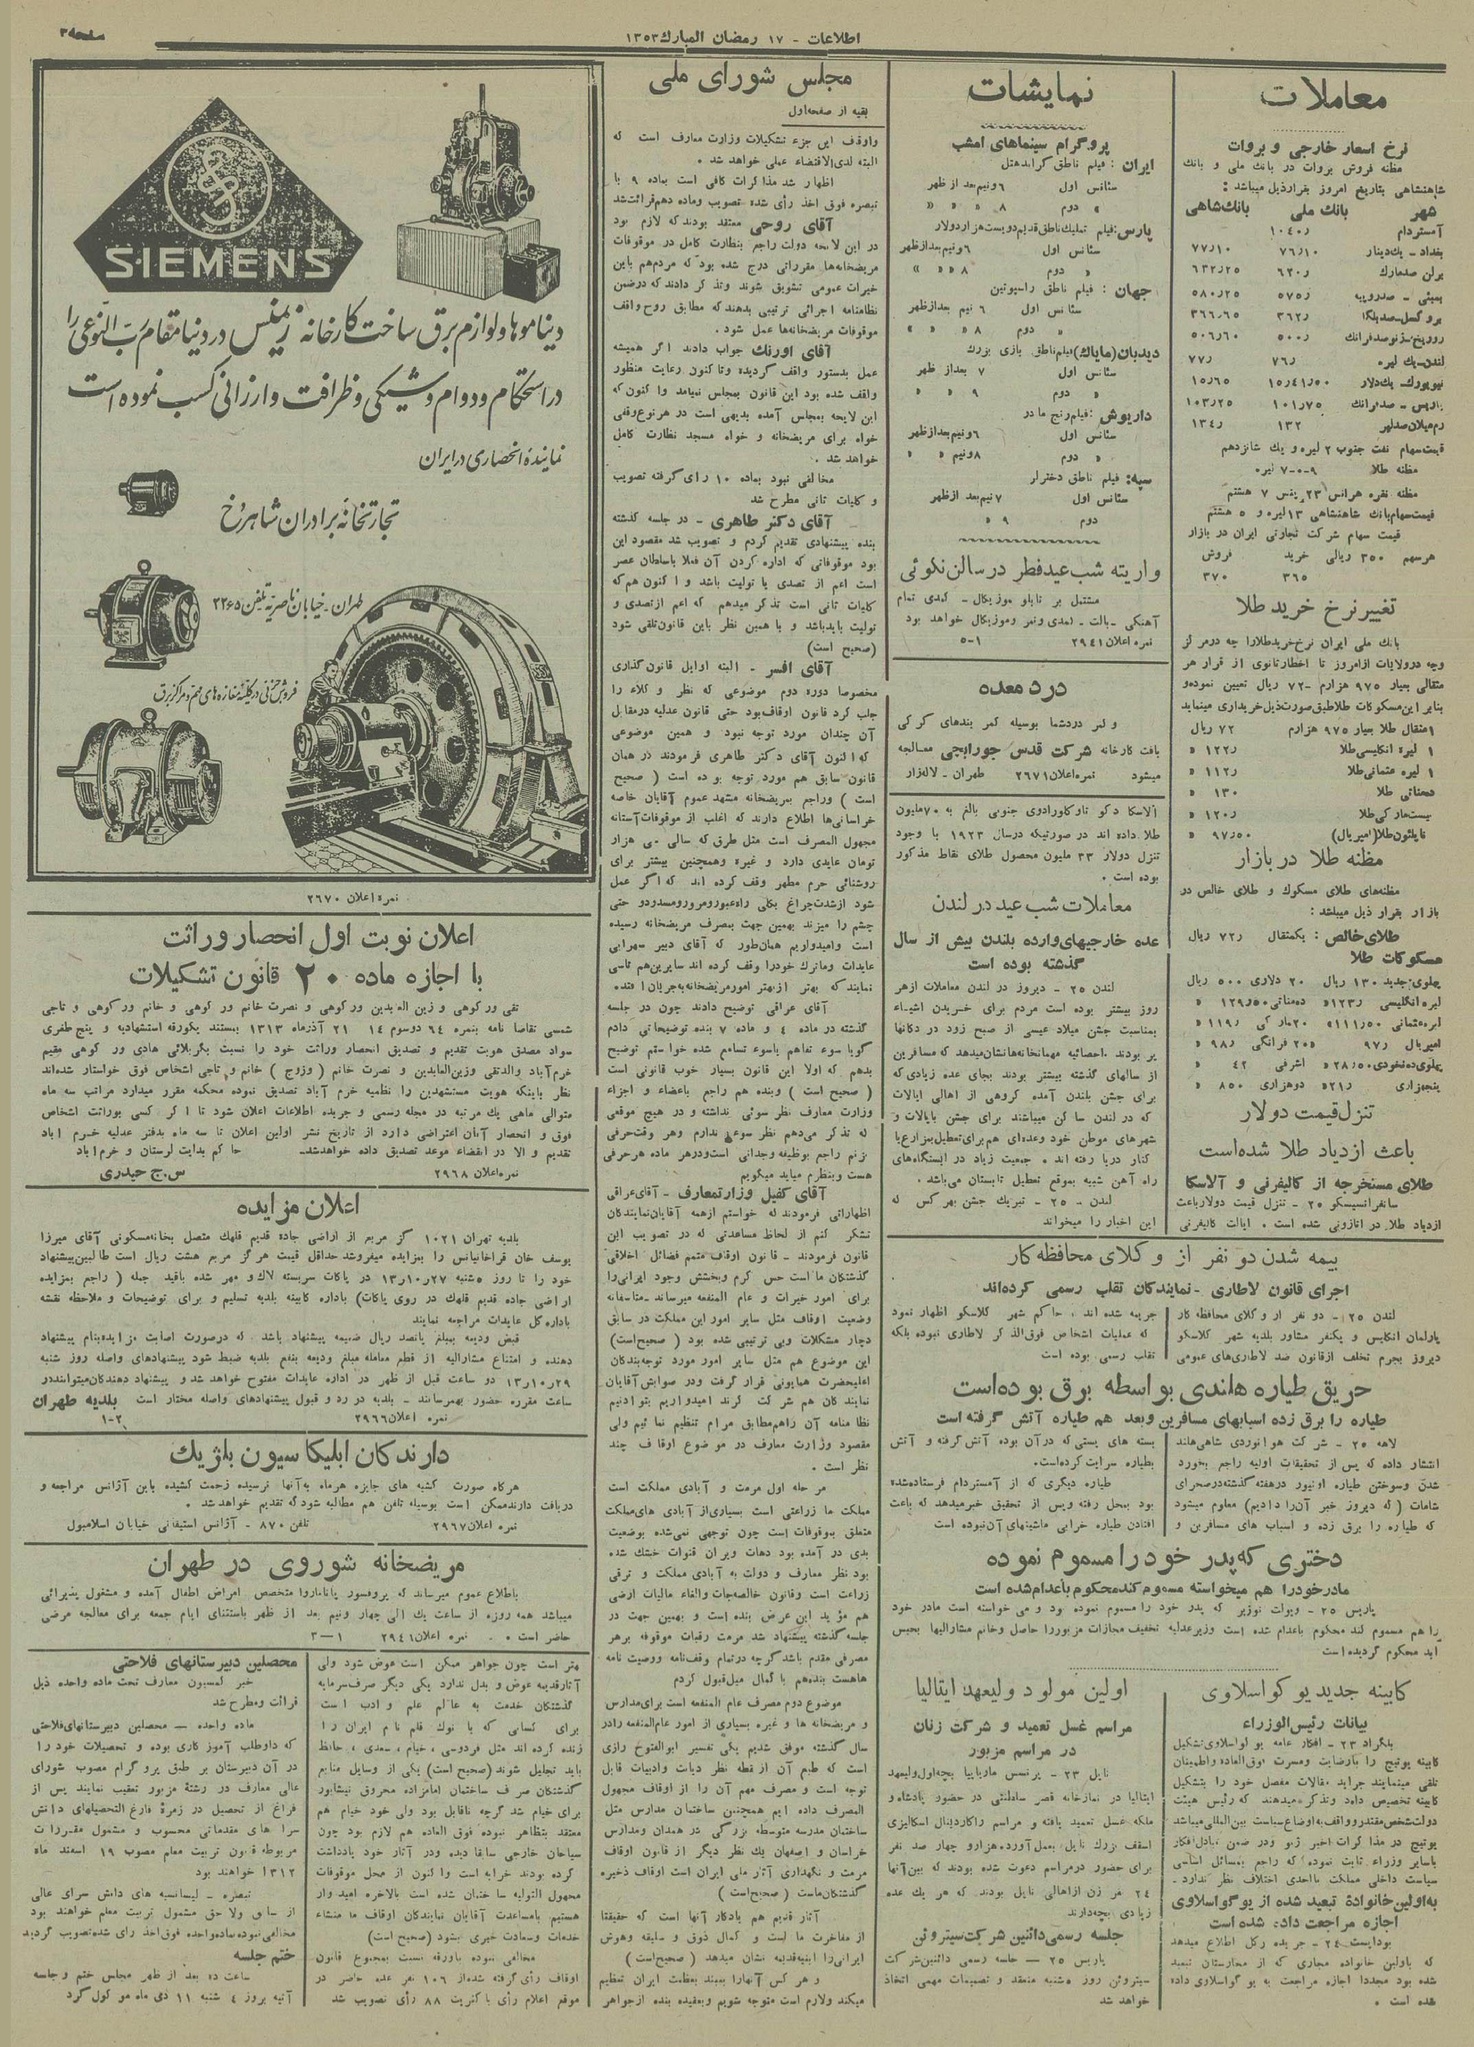 صفحه ۳
اطلاعات - ۱۷ رمضان المبارك ۱۳۵۳
معاملات
نرخ اسعار خارجی و بروات
مظنه فروش بروات در بانك ملی و بانك
شاهنشاهی بتاریخ امروز بقرار ذیل میباشد :
شهر بانك ملی بانك شاهی
آمستردام ۱۰۴۰ر
بغداد - یك دینار ۷۶ر۱۰ ۷۷ر۱۰
برلن صدمارك ۶۲۰ر ۶۳۲ر۲۵
بمبئی - صدروپیه ۵۷۵ر ۵۸۰ر۲۵
بروکسل - صدبلگا ۳۶۲ر ۳۶۶ر۶۵
۵۰۰ر ۵۰۶ر۶۰
لندن - یك لیره ۷۶ر ۷۷ر
نیویورك - یك دلار ۱۵ر۴۱ر۵۰ ۱۵ر۶۵
پاریس - صدفرانك ۱۰۱ر۷۵ ۱۰۳ر۲۵
۱۳۲ ۱۳۴ر
قیمت سهام نفت جنوب ۲ لیره و یك شانزدهم
مظنه طلا ۹-۰-۷ لیره
مظنه نقره هرانس ۲۳ پنس ۷ هشتم
قیمت سهام بانك شاهنشاهی ۱۳ لیره و ۵ هشتم
قیمت سهام شرکت تجارتی ایران در بازار
هرسهم ۳۵۰ ریالی خرید فروش
۳۶۵ ۳۷۰
تغییر نرخ خرید طلا
بانك ملی ایران نرخ خرید طلا را چه در مرکز
وچه در ولایات از امروز تا اخطار ثانوی از قرار هر
مثقالی بعیار ۹۷۵ هزارم -۷۲ ریال تعیین نموده و
بنابر این مسکوکات طلا طبق صورت ذیل خریداری مینماید
۱ مثقال طلا بعیار ۹۷۵ هزارم ۷۲ ریال
۱ لیره انگلیسی طلا ۱۲۲ر «
۱ لیره عثمانی طلا ۱۱۲ر «
دهمناتی طلا ۱۳۰ «
بیست مارکی طلا ۱۲۰ر «
ناپلئون طلا (امپریال) ۹۷ر۵۰ «
مظنه طلا در بازار
مظنه های طلای مسکوك و طلای خالص در
بازار بقرار ذیل میباشد :
طلای خالص : یکمثقال ۷۲ر ریال
مسکوکات طلا
پهلوی جدید ۱۳۰ ریال ۲۰ دلاری ۵۰۰ ریال
لیره انگلیسی ۱۲۳ر« دهمناتی ۱۲۹ر۵۰ «
لیره عثمانی ۱۱۱ر۵۰« ۲۰مارکی ۱۱۹ر «
امپریال ۹۷ر ۲۰« فرانگی ۹۸ر «
پهلوی ده نخودی ۲۸ر۵۰« اشرفی ۴۲ «
پنجهزاری ۲۱ر« دوهزاری ۸۵۰ «
تنزل قیمت دولار
باعث ازدیاد طلا شده است
طلای مستخرجه از کالیفرنی و آلاسکا
سانفرانسیسکو ۲۵ - تنزل قیمت دولار باعث
ازدیاد طلا در اتازونی شده است . ایالت کالیفرنی
نمایشات
پروگرام سینماهای امشب
ایران : فیلم ناطق گراندهتل
سئانس اول ۶ونیم بعد از ظهر
« دوم ۸ « « «
پارس : فیلم تمایك ناطق قدیم دویست هزار دولار
سئانس اول ۶ونیم بعد از ظهر
« دوم ۸ « « «
جهان : فیلم ناطق راسپوتین
سئانس اول ۶ نیم بعد از ظهر
« دوم ۸ « « «
دیدبان (مایاك) فیلم ناطق بازی بزرك
سئانس اول ۷ بعد از ظهر
« دوم ۹ « «
داریوش : فیلم رنج مادر
سئانس اول ۶ونیم بعد از ظهر
« دوم ۸ونیم « «
سپه : فیلم ناطق دختر لر
سئانس اول ۷ونیم بعد از ظهر
دوم ۹ «
واریته شب عید فطر در سالن نکوئی
مشتمل بر تابلو موزیکال - کمدی تمام
آهنگی - بالت - کمدی و نمر و موزیکال خواهد بود
نمره اعلان ۲۹۴۱ ۵-۱
درد معده
و کمر دردشما بوسیله کمر بندهای کرکی
بافت کارخانه شرکت قدس جورابچی معالجه
میشود نمره اعلان ۲۶۷۱ طهران - لاله زار
آلاسکا داکوتا و کلورادوی جنوبی بالغ به ۷۰ ملیون
طلا داده اند در صورتیکه در سال ۱۹۲۳ با وجود
تنزل دولار ۳۳ ملیون محصول طلای نقاط مذکور
بوده است .
معاملات شب عید در لندن
عده خارجیهای وارده بلندن بیش از سال
گذشته بوده است
لندن ۲۵ - دیروز در لندن معاملات از هر
روز بیشتر بوده است مردم برای خریدن اشیاء
بمناسبت جشن میلاد عیسی از صبح زود در دکانها
پر بودند . احصائیه مهمانخانه ها نشان میدهد که مسافرین
از سالهای گذشته بیشتر بودند بجای عده زیادی که
برای جشن بلندن آمده گروهی از اهالی ایالات
که در لندن ساکن میباشند برای جشن بایالات و
شهرهای موطن خود وعده ای هم برای تعطیل بمزارع یا
کنار دریا رفته اند . جمعیت زیاد در ایستگاه های
راه آهن شبیه بموقع تعطیل تابستان میباشد .
لندن - ۲۵ - تبریك جشن بهر کس که
این اخبار را میخواند
بیمه شدن دو نفر از وکلای محافظه کار
اجرای قانون لاطاری - نمایندگان تقلب رسمی کرده اند
لندن ۲۵ - دو نفر از وکلای محافظه کار
پارلمان انگلیس و یکنفر مشاور بلدیه شهر گلاسکو
دیروز بجرم تخلف از قانون ضد لاطاری های عمومی
جریمه شده اند . حاکم شهر گلاسکو اظهار نمود
که عملیات اشخاص فوق الذکر لاطاری نبوده بلکه
تقلب رسمی بوده است
حریق طیاره هلندی بواسطه برق بوده است
طیاره را برق زده اسبابهای مسافرین و بعد هم طیاره آتش گرفته است
لاهه ۲۵ - شرکت هوانوردی شاهی هلند
انتشار داده که پس از تحقیقات اولیه راجع بخورد
شدن و سوختن طیاره اونیور در هفته گذشته در صحرای
شامات (که دیروز خبر آن را دادیم) معلوم میشود
که طیاره را برق زده و اسباب های مسافرین و
بسته های پستی که در آن بوده آتش گرفته و آتش
بطیاره سرایت کرده است .
طیاره دیگری که از آمستردام فرستاده شده
بود بمحل رفته و پس از تحقیق خبر میدهد که باعث
افتادن طیاره خرابی ماشینهای آن نبوده است
دختری که پدر خود را مسموم نموده
مادر خود را هم میخواسته مسموم کند محکوم باعدام شده است
پاریس ۲۵ - ویولت نوزیر که پدر خود را مسموم نموده بود و می خواسته است مادر خود
را هم مسموم کند محکوم باعدام شده است وزیر عدلیه تخفیف مجازات مزبور را حاصل وخانم مشارالیها بحبس
ابد محکوم گردیده است
کابینه جدید یوگواسلاوی
بیانات رئیس الوزراء
بلگراد ۲۳ - افکار عامه یوگواسلاوی تشکیل
کابینه یوتیچ را بارضایت ومسرت فوق العاده واطمینان
تلقی مینمایند جراید مقالات مفصل خود را بتشکیل
کابینه تخصیص داده وتذکر میدهند که رئیس هیئت
دولت شخص مقتدر و واقف به اوضاع سیاست بین المللی میباشد
یوتیچ در مذاکرات اخیر ژنو ودر ضمن تبادل افکار
باسایر وزراء ثابت نموده که راجع بمسائل اساسی
سیاست داخلی مملکت با احدی اختلاف نظر ندارد .
به اولین خانواده تبعید شده از یوگواسلاوی
اجازه مراجعت داده شده است
بوداپست ۲۴ - جریده رکل اطلاع میدهد
که باولین خانواده مجاری که از مجارستان تبعید
شده بود مجدداً اجازه مراجعت به یوگواسلاوی داده
شده است .
اولین مولود ولیعهد ایتالیا
مراسم غسل تعمید و شرکت زنان
در مراسم مزبور
ناپل ۲۳ - پرنسس ماریاپیا بچه اول ولیعهد
ایتالیا در نمازخانه قصر سلطنتی در حضور پادشاه و
ملکه غسل تعمید یافته و مراسم را کاردینال اسکالیزی
اسقف بزرك ناپل بعمل آورده هزار و چهار صد نفر
برای حضور در مراسم دعوت شده بودند که بین آنها
۲۴ نفر زن از اهالی ناپل بودند که هر یك عده
زیادی بچه دارند
جلسه رسمی دائنین شرکت سیتروئن
پاریس ۲۵ - جلسه رسمی دائنین شرکت
سیتروئن روز ۵ شنبه منعقد و تصمیمات مهمی اتخاذ
خواهد شد
مجلس شورای ملی
بقیه از صفحه اول
واوقف این جزء تشکیلات وزارت معارف است که
البته لدی الاقتضاء عملی خواهد شد .
اظهار شد مذاکرات کافی است بماده ۹ با
تبصره فوق اخذ رأی شده تصویب وماده دهم قرائت شد
آقای روحی معتقد بودند که لازم بود
در این لایحه دولت راجع بنظارت کامل در موقوفات
مریضخانه ها مقرراتی درج شده بود که مردم هم باین
خیرات عمومی تشویق شوند وتذکر دادند که در ضمن
نظامنامه اجرائی ترتیبی بدهند که مطابق روح واقف
موقوفات مریضخانه ها عمل شود .
آقای اورنك جواب دادند اگر همیشه
عمل بدستور واقف گردیده وتا کنون رعایت منظور
واقف شده بود این قانون بمجلس نمیامد واکنون که
این لایحه بمجلس آمده بدیهی است در هر نوع وقفی
خواه برای مریضخانه و خواه مسجد نظارت کامل
خواهد شد .
مخالفی نبود بماده ۱۰ رای گرفته تصویب
و کلیات ثانی مطرح شد
آقای دکتر طاهری - در جلسه گذشته
بنده پیشنهادی تقدیم کردم و تصویب شد مقصود این
بود موقوفاتی که اداره کردن آن فعلا باسلطان عصر
است اعم از تصدی یا تولیت باشد و اکنون هم که
کلیات ثانی است تذکر میدهم که اعم از تصدی و
تولیت باید باشد و با همین نظر باین قانون تلقی شود
(صحیح است)
آقای افسر - البته اوایل قانون گذاری
مخصوصا دوره دوم موضوعی که نظر وکلاء را
جلب کرد قانون اوقاف بود حتی قانون عدلیه در مقابل
آن چندان مورد توجه نبود و همین موضوعی
که اکنون آقای دکتر طاهری فرمودند در همان
قانون سابق هم مورد توجه بوده است ( صحیح
است ) و راجع بمریضخانه مشهد عموم آقایان خاصه
خراسانی ها اطلاع دارند که اغلب از موقوفات آستانه
مجهول المصرف است مثل طرق که سالی سی هزار
تومان عایدی دارد و غیره وهمچنین بیشتر برای
روشنائی حرم مطهر وقف کرده اند که اگر عمل
شود از شدت چراغ بکلی راه عبور و مرور مسدود و حتی
چشم را میزند بهمین جهت بمصرف مریضخانه رسیده
است وامیدواریم همان طور که آقای دبیر سهرابی
عایدات وماترك خود را وقف کرده اند سایرین هم تأسی
نمایند که بهتر از بهتر امور مریضخانه به جریان افتد .
آقای عراقی توضیح دادند چون در جلسه
گذشته در ماده ۴ و ماده ۷ بنده توضیحاتی دادم
گویا سوء تفاهم یا سوء تسامع شده خواستم توضیح
بدهم که اولا این قانون بسیار خوب قانونی است
( صحیح است ) وبنده هم راجع باعضاء و اجزاء
وزارت معارف نظر سوئی نداشته و در هیچ موقعی
که تذکر می دهم نظر سوء ندارم وهر وقت حرفی
بزنم راجع بوظیفه وجدانی است ودرهر ماده هر حرفی
هست وبنظرم میاید میگویم
آقای کفیل وزارت معارف - آقای عراقی
اظهاراتی فرمودند که خواستم از همه آقایان نمایندگان
تشکر کنم از لحاظ مساعدتی که در تصویب این
قانون فرمودند - قانون اوقاف متمم فضائل اخلاقی
گذشتگان ما است حس کرم وبخشش وجود ایرانی را
برای امور خیرات و عام المنفعه میرساند - متاسفانه
وضعیت اوقاف مثل سایر امور این مملکت در سابق
دچار مشکلات وبی ترتیبی شده بود ( صحیح است)
این موضوع هم مثل سایر امور مورد توجه بندگان
اعلیحضرت همایونی قرار گرفت ودر صوابش آقایان
نمایندگان هم شرکت کردند امیدواریم بتوانیم
نظامنامه آن را هم مطابق مرام تنظیم نمائیم ولی
مقصود وزارت معارف در موضوع اوقاف چند
نظر است .
مرحله اول مرمت و آبادی مملکت است
مملکت ما زراعتی است بسیاری از آبادی های مملکت
متعلق بموقوفات است چون توجهی نمی شده بوضعیت
بدی در آمده بود دهات ویران قنوات خشك شده
بود نظر معارف و دولت به آبادی مملکت و ترقی
زراعت است وقانون خالصجات والغاء مالیات ارضی
هم مؤید این عرض بنده است و بهمین جهت در
جلسه گذشته پیشنهاد شد مرمت رقبات موقوفه برهر
مصرفی مقدم باشد گرچه در تمام وقف نامه ووصیت نامه
هاهست بنده هم با کمال میل قبول کردم
موضوع دوم مصرف عام المنفعه است برای مدارس
و مریضخانه ها و غیره بسیاری از امور عام المنفعه را در
سال گذشته موفق شدیم یکی تفسیر ابوالفتوح رازی
است که طبع آن از نقطه نظر دیانت وادبیات قابل
توجه است و مصرف مهم آن را از اوقاف مجهول
المصرف داده ایم همچنین ساختمان مدارس مثل
ساختمان مدرسه متوسطه بزرگی در همدان ومدارس
خراسان و اصفهان یك نظر دیگر از قانون اوقاف
مرمت و نگهداری آثار ملی ایران است اوقاف ذخیره
گذشتگان ماست ( صحیح است )
آثار قدیم هم یادگار آنها است که حقیقتا
از مفاخرت ما است و کمال ذوق و سلیقه وهوش
ایرانی را ابنیه قدیمه نشان میدهد ( صحیح است )
و هر کس آنها را ببیند بعظمت ایران تعظیم
میکند ولازم است متوجه شویم وبعقیده بنده از جواهر
بهتر است چون جواهر ممکن است عوض شود ولی
آثار قدیمه عوض و بدل ندارد یکی دیگر صرف سرمایه
گذشتگان خدمت به عالم علم و ادب است
برای کسانی که با نوك قلم نام ایران را
زنده کرده اند مثل فردوسی ، خیام ، سعدی ، حافظ
باید تجلیل شوند (صحیح است) یکی از وسایل منابع
گذشتگان صرف ساختمان امامزاده محروق نیشابور
برای خیام شد گرچه ناقابل بود ولی خود خیام هم
معتقد بتظاهر نبوده فوق العاده هم لازم بود چون
سیاحان خارجی سابقا دیده ودر آثار خود یادداشت
کرده بودند خرابه است واکنون از محل موقوفات
مجهول التولیه ساختمان شده است بالاخره امیدوار
هستیم بامساعدت آقایان نمایندگان اوقاف ما منشاء
خدمات وسعادت خیری بشود (صحیح است)
مخالفی نبوده باورقه نسبت بمجموع قانون
اوقاف رأی گرفته شده از ۱۰۶ نفر عده حاضر در
موقع اعلام رأی با کثریت ۸۸ رأی تصویب شد
محصلین دبیرستانهای فلاحتی
خبر کمسیون معارف تحت ماده واحده ذیل
قرائت ومطرح شد
ماده واحده - محصلین دبیرستانهای فلاحتی
که داوطلب آموزگاری بوده و تحصیلات خود را
در آن دبیرستان بر طبق پروگرام مصوب شورای
عالی معارف در رشتۀ مزبور تعقیب نمایند پس از
فراغ از تحصیل در زمرۀ فارغ التحصیلهای دانش
سرا های مقدماتی محسوب و مشمول مقررات
مربوطه قانون تربیت معلم مصوب ۱۹ اسفند ماه
۱۳۱۲ خواهند بود
تبصره - لیسانسیه های دانش سرای عالی
از سابق ولاحق مشمول تربیت معلم خواهند بود
مخالفی نبوده بماده واحده فوق اخذ رای شده تصویب گردید
ختم جلسه
ساعت ده بعد از ظهر مجلس ختم و جلسه
آتیه بروز ۴ شنبه ۱۱ دی ماه موکول گرد
SIEMENS
دینامو ها و لوازم برق ساخت کارخانه زیمنس در دنیا مقام رب النوعی را
در استحکام و دوام و شیکی و ظرافت و ارزانی کسب نموده است
نماینده انحصاری در ایران
تجارتخانه برادران شاهرخ
طهران - خیابان ناصریه تلیفن ۲۲۶۵
فروش جزئی در کلیه مغازه های مهم و مراکز برق
نمره اعلان ۲۶۷۰
اعلان نوبت اول انحصار وراثت
با اجازه ماده ۲۰ قانون تشکیلات
تقی ورکوهی و زین العابدین ورکوهی و نصرت خانم ورکوهی و خانم ورکوهی و تاجی
شمسی تقاضا نامه بنمره ۶۴ دوسیه ۱۴ ۲۱ آذرماه ۱۳۱۳ بمستند یکورقه استشهادیه و پنج طغری
سواد مصدق هویت تقدیم و تصدیق انحصار وراثت خود را نسبت بکربلائی هادی ورکوهی مقیم
خرم آباد والدتقی وزین العابدین و نصرت خانم ( وزوج ) خانم و تاجی اشخاص فوق خواستار شده اند
نظر باینکه هویت مستشهدین را نظمیه خرم آباد تصدیق نموده محکمه مقرر میدارد مراتب سه ماه
متوالی ماهی یك مرتبه در مجله رسمی و جریده اطلاعات اعلان شود تا اگر کسی بوراثت اشخاص
فوق و انحصار آنان اعتراضی دارد از تاریخ نشر اولین اعلان تا سه ماه بدفتر عدلیه خرم اباد
تقدیم و الا در انقضاء موعد تصدیق داده خواهد شد - حاکم بدایت لرستان و خرم اباد
نمره اعلان ۲۹۶۸ س . ج حیدری
اعلان مزایده
بلدیه تهران ۱۰۲۱ گز مربع از اراضی جاده قدیم قلهك متصل بخانه مسکونی آقای میرزا
یوسف خان قراخانیانس را بمزایده میفروشد حداقل قیمت هر گز مربع هشت ریال است طالبین پیشنهاد
خود را تا روز ۵شنبه ۲۷ر۱۰ر۱۳ در پاکات سربسته لاك و مهر شده باقید جمله ( راجع بمزایده
اراضی جاده قدیم قلهك در روی پاکات) باداره کابینه بلدیه تسلیم و برای توضیحات و ملاحظه نقشه
باداره کل عایدات مراجعه نمایند
قبض ودیعه بمبلغ پانصد ریال ضمیمه پیشنهاد باشد . که در صورت اصابت مزایده بنام پیشنهاد
دهنده و امتناع مشارالیه از قطع معامله مبلغ ودیعه بنفع بلدیه ضبط شود پیشنهادهای واصله روز شنبه
۲۹ر۱۰ر۱۳ دو ساعت قبل از ظهر در اداره عایدات مفتوح خواهد شد و پیشنهاد دهندگان میتوانند در
ساعت مقرره حضور بهمرسانند - بلدیه در رد و قبول پیشنهادهای واصله مختار است بلدیه طهران
نمره اعلان ۲۹۶۶ ۲-۱
دارندگان ابلیکاسیون بلژیك
هرگاه صورت کشیه های جایزه هرماه به آنها نرسیده زحمت کشیده باین آژانس مراجعه و
دریافت دارند ممکن است بوسیله تلفن هم مطالبه شود که تقدیم خواهد شد .
نمره اعلان ۲۹۶۷ تلفن ۸۷۰ - آژانس استیفانی خیابان اسلامبول
مریضخانه شوروی در طهران
باطلاع عموم میرساند که پروفسور پاناماروا متخصص امراض اطفال آمده و مشغول پذیرائی
میباشد همه روزه از ساعت یك الی چهار ونیم بعد از ظهر باستثنای ایام جمعه برای معالجه مرضی
حاضر است . نمره اعلان ۲۹۴۱ ۳-۱